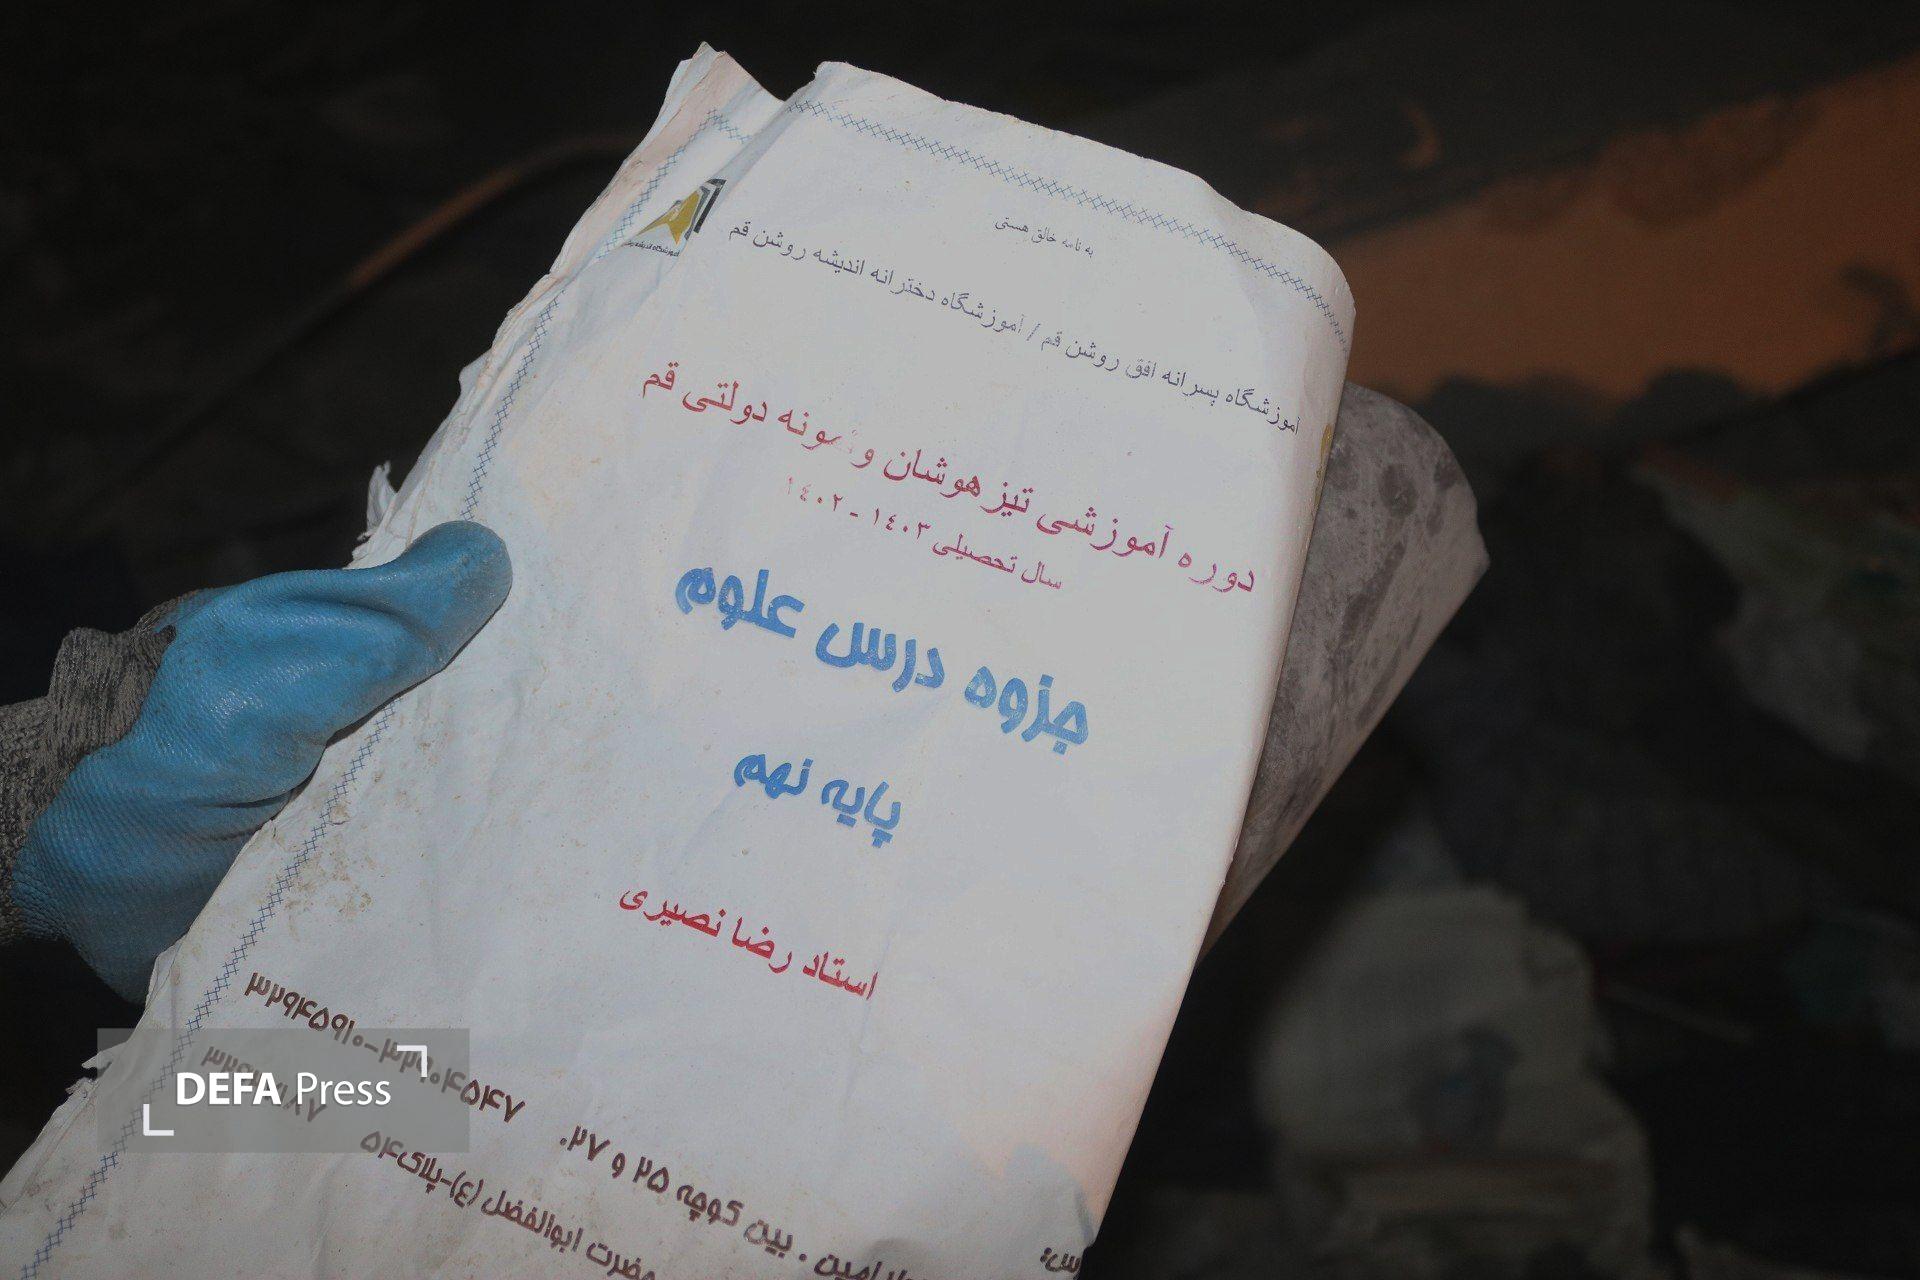 به نام خالق هستی
آموزشگاه پسرانه افق روشن قم / آموزشگاه دخترانه اندیشه روشن قم
دوره آموزشی تیزهوشان و نمونه دولتی قم
سال تحصیلی ۱۴۰۳ - ۱۴۰۲
جزوه درس علوم
پایه نهم
استاد رضا نصیری
بین کوچه ۲۵ و ۲۷.
حضرت ابوالفضل (ع)-پلاک۵۴
DEFA Press